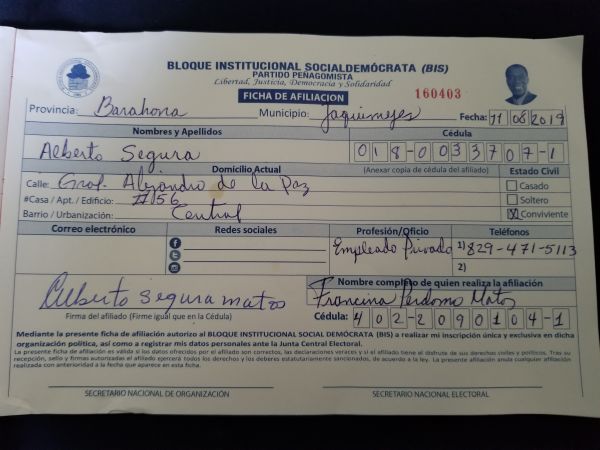 BLOQUE INSTITUCIONAL SOCIALDEMÓCRATA (BIS)
PARTIDO PEÑAGOMISTA
Libertad, Justicia, Democracia y Solidaridad
FICHA DE AFILIACION
160403
Provincia: Barahona Municipio: Jaquimeyes Fecha: 11 08 2019
Nombres y Apellidos Cédula
Alberto Segura 018-0033707-1
Domicilio Actual (Anexar copia de cédula del afiliado) Estado Civil
Calle: Gral. Alejandro de la Paz Casado
#Casa / Apt. / Edificio: #156 Soltero
Barrio / Urbanización: Central X Conviviente
Correo electrónico Redes sociales Profesión/Oficio Teléfonos
Empleado Privado 1) 829-471-5113
2)
Nombre completo de quien realiza la afiliación
Alberto segura matos Francina Perdomo Matos
Firma del afiliado (Firme igual que en la Cédula) Cédula: 402-2090104-1
Mediante la presente ficha de afiliación autorizo al BLOQUE INSTITUCIONAL SOCIAL DEMÓCRATA (BIS) a realizar mi inscripción única y exclusiva en dicha
organización política, así como a registrar mis datos personales ante la Junta Central Electoral.
La presente ficha de afiliación es válida si los datos ofrecidos por el afiliado son correctos, las declaraciones veraces y si el afiliado tiene el disfrute de sus derechos civiles y políticos. Tras su
recepción, sello y firmas autorizadas el afiliado ejercerá todos los derechos y los deberes estatutariamente sancionados, de acuerdo a la ley. La presente afiliación anula cualquier afiliación
realizada con anterioridad a la fecha que aparece en esta ficha.
SECRETARIO NACIONAL DE ORGANIZACIÓN SECRETARIO NACIONAL ELECTORAL